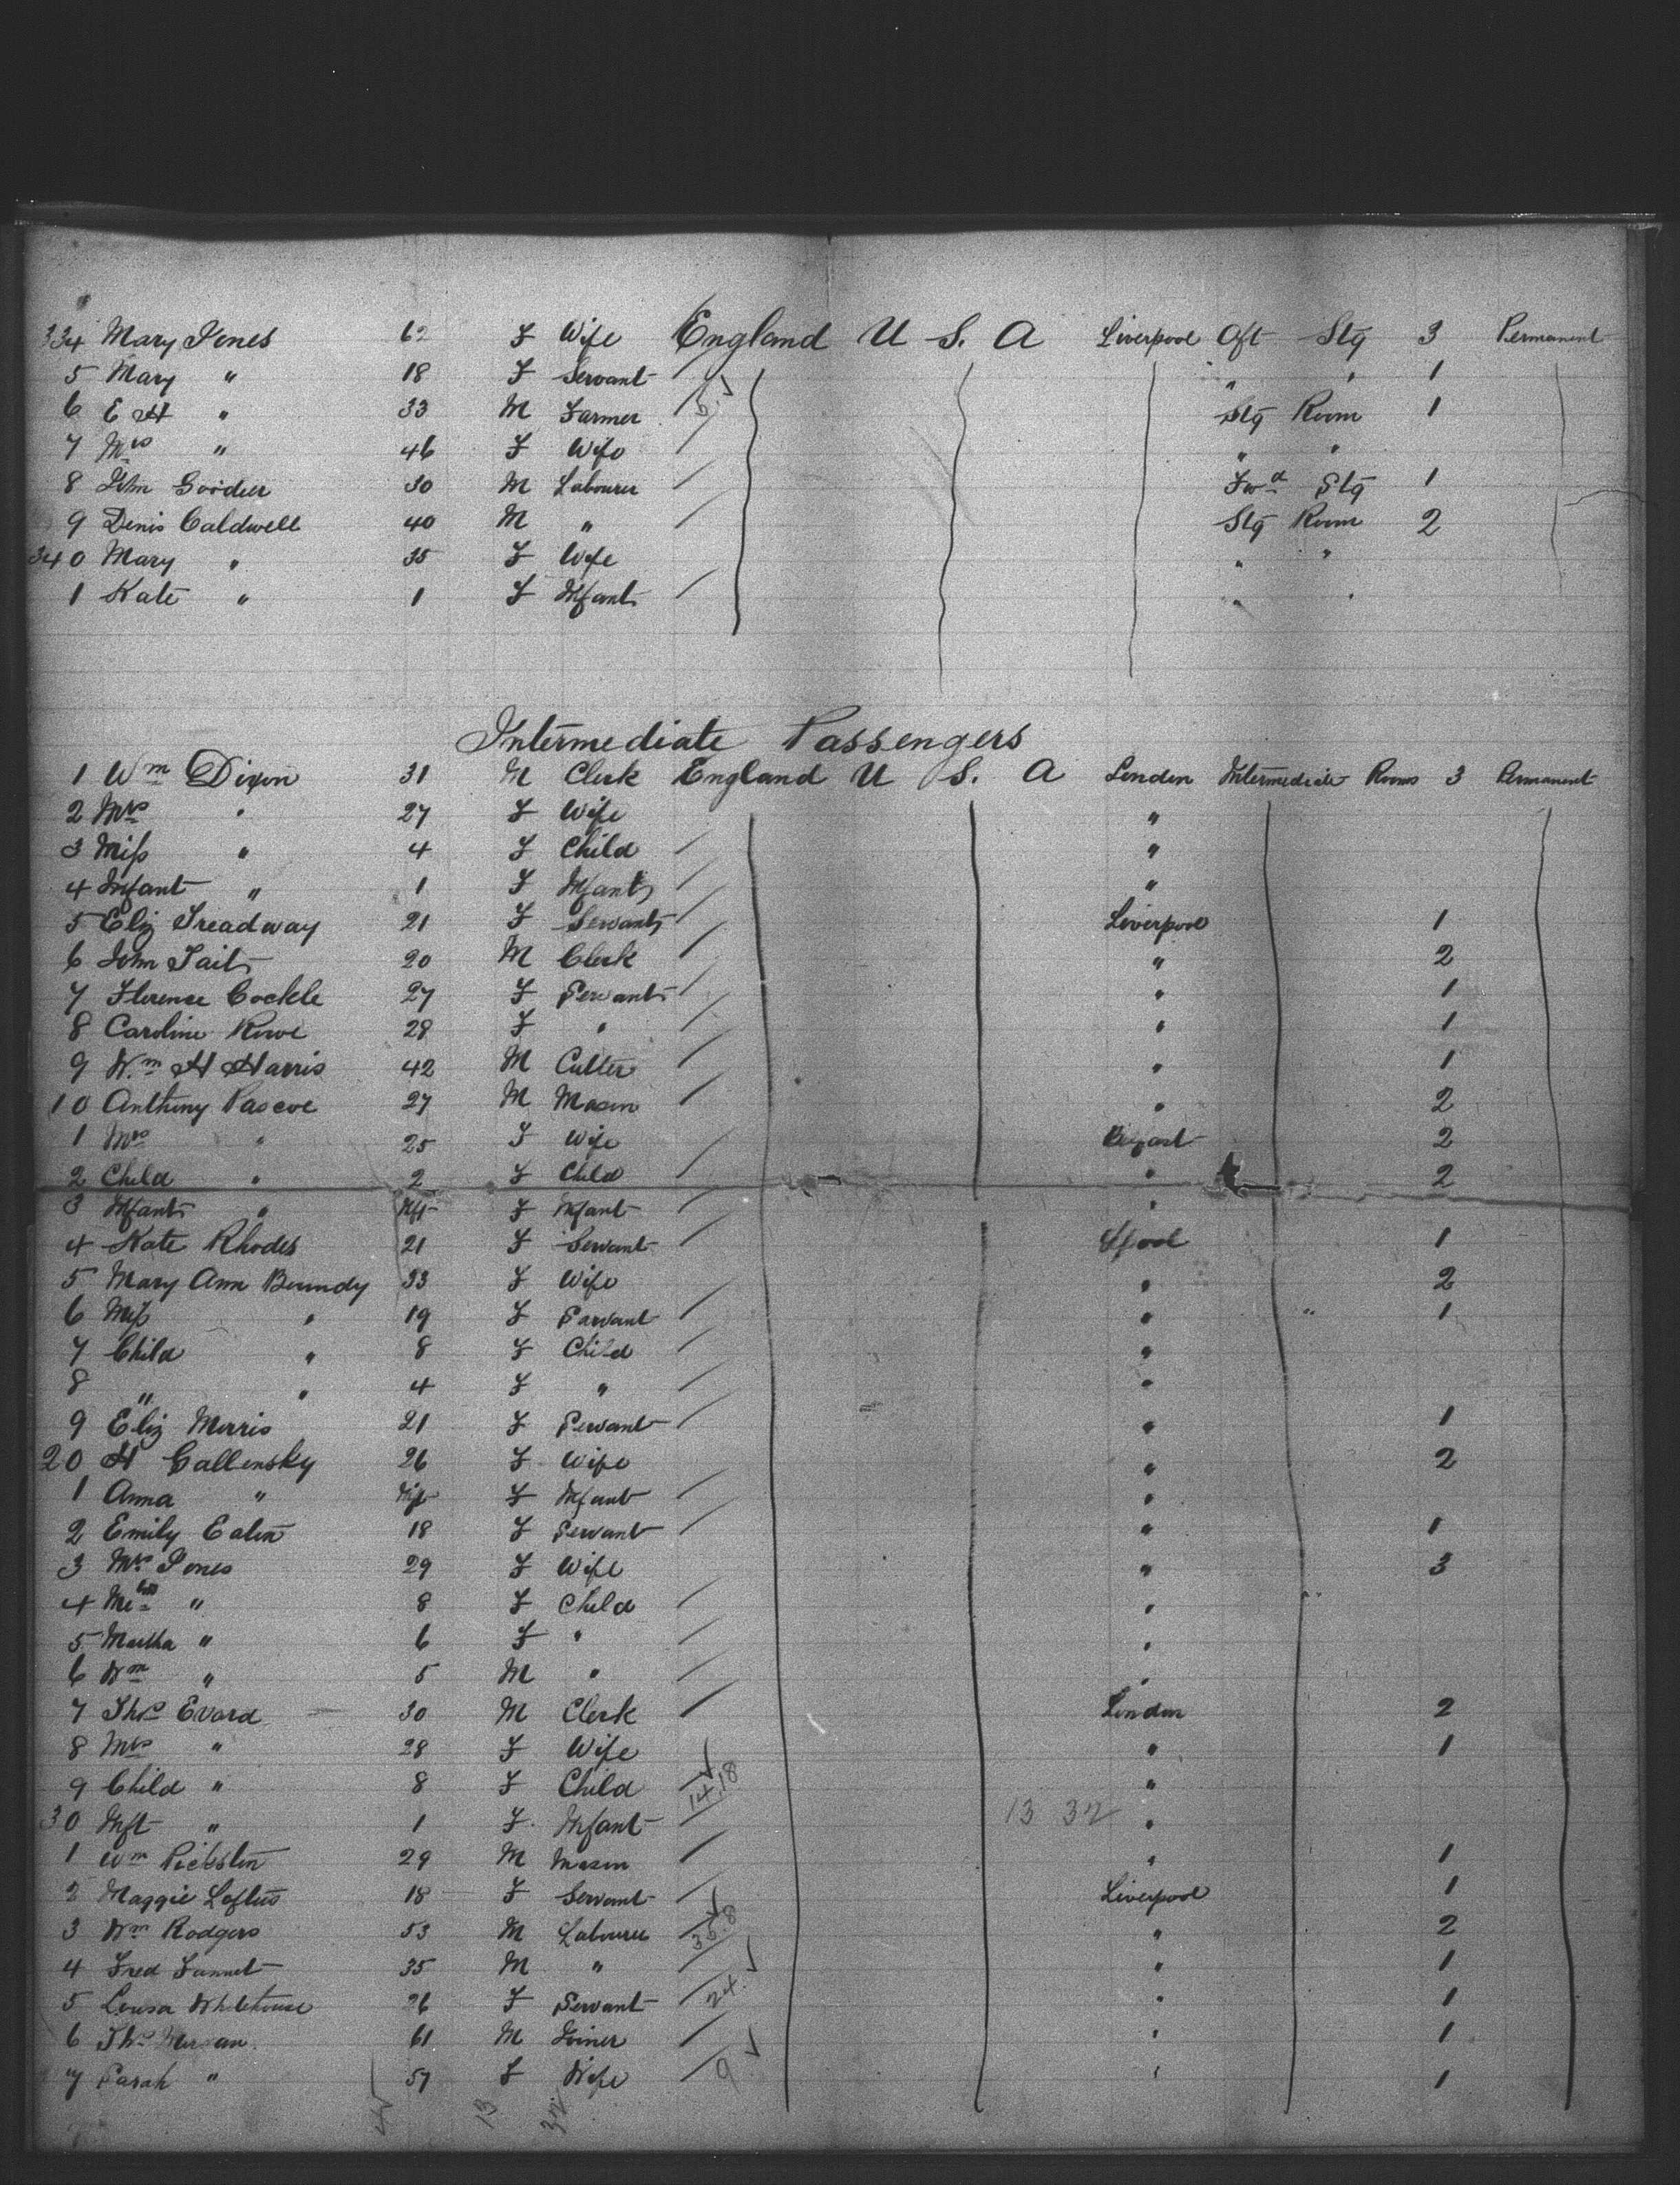 334 Mary Jones 62 F Wife England U S. A Liverpool Aft Stg 3 Permanent
5 Mary " 18 F Servant " " 1
6 E H " 33 M Farmer Stg Room 1
7 Mrs " 46 F Wife " "
8 John Goodier 30 M Labourer Fwd Stg 1
9 Denis Caldwell 40 M " Stg Room 2
340 Mary " 35 F Wife " "
1 Kate " 1 F Infant " "
Intermediate Passengers
1 Wm Dixon 31 M Clerk England U S. A London Intermediate Rooms 3 Permanent
2 Mrs " 27 F Wife "
3 Miss " 4 F Child "
4 Infant " 1 F Infant "
5 Eliz Treadway 21 F Servant Liverpool 1
6 John Tait 20 M Clerk " 2
7 Florence Cockle 27 F Servant " 1
8 Caroline Rowe 28 F " " 1
9 Wm H Harris 42 M Cutter " 1
10 Anthony Pascoe 27 M Mason " 2
1 Mrs " 25 F Wife 2
2 Child " 2 F Child " 2
3 Infant " Inft F Infant "
4 Kate Rhodes 21 F Servant Lpool 1
5 Mary Ann Bundy 33 F Wife " 2
6 Miss " 19 F Servant " 1
7 Child " 8 F Child "
8 " " 4 F " "
9 Eliz Morris 21 F Servant " 1
20 H Callensky 26 F Wife " 2
1 Anna " Inft F Infant "
2 Emily Eaton 18 F Servant " 1
3 Mrs Jones 29 F Wife " 3
4 " 8 F Child "
5 Martha " 6 F " "
6 Wm " 5 M " "
7 Thos Evard 30 M Clerk London 2
8 Mrs " 28 F Wife " 1
9 Child " 8 F Child 14.18 "
30 Inft " 1 F Infant 13 32 "
1 Wm 29 M Mason " 1
2 Maggie Loftus 18 F Servant Liverpool 1
3 Wm Rodgers 53 M Labourer " 2
4 Fred 35 M " " 1
5 Louisa Whitehouse 26 F Servant 24. " 1
6 Thos 61 M Joiner " 1
7 Sarah " 57 F Wife 9 " 1
13 32